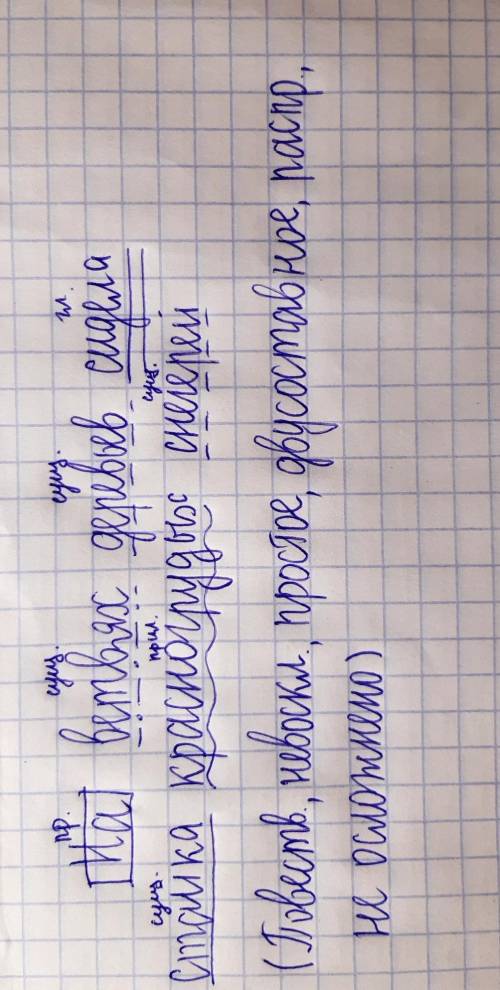 пр. сущ. сущ. гл.
На ветвьях деревьев сидела
сущ. прил. сущ.
стайка красногрудых снегерей
(Повеств., невоскл., простое, двусоставное, распр.,
не осложнено)